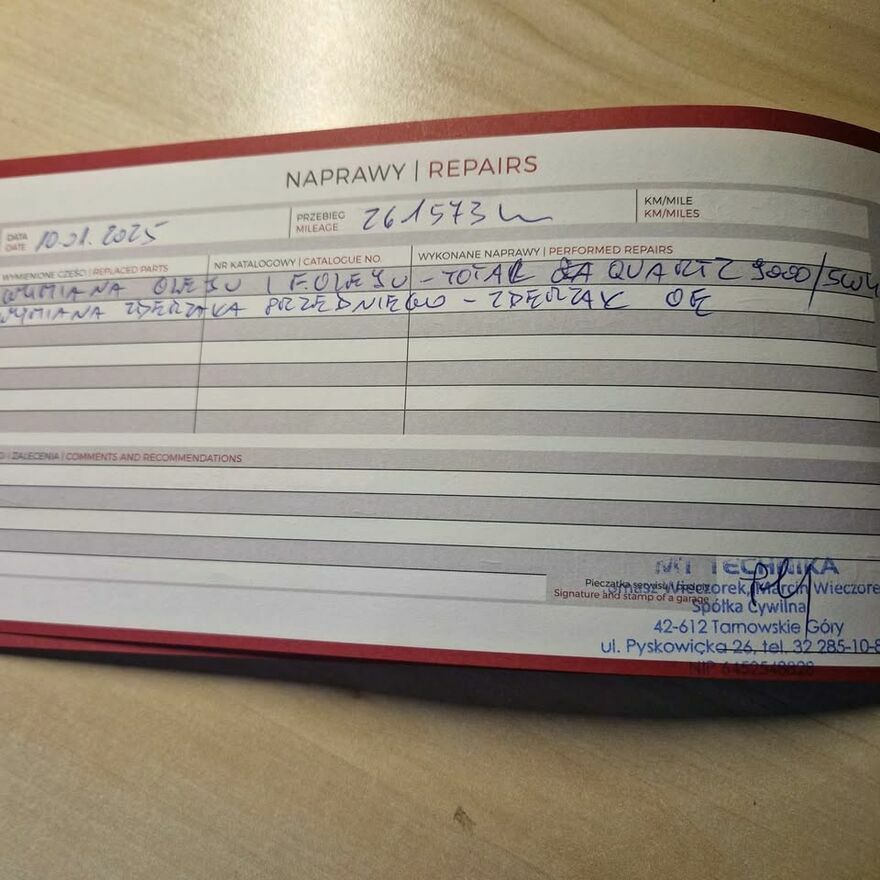 NAPRAWY | REPAIRS
DATA
DATE
10.01.2025
PRZEBIEG
MILEAGE
261573
KM/MILE
KM/MILES
WYMIENIONE CZĘŚCI | REPLACED PARTS
NR KATALOGOWY | CATALOGUE NO.
WYKONANE NAPRAWY | PERFORMED REPAIRS
WYMIANA OLEJU I F. OLEJU - TOTAL QUARTZ 9000/5W4
WYMIANA ZDERZAKA PRZEDNIEGO - ZDERZAK OE
I ZALECENIA | COMMENTS AND RECOMMENDATIONS
MT TECHNIKA
Pieczątka serwisu i podpis
Signature and stamp of a garage
Tomasz Wieczorek, Marcin Wieczore
Spółka Cywilna
42-612 Tarnowskie Góry
ul. Pyskowicka 26, tel. 32 285-10-8
NIP